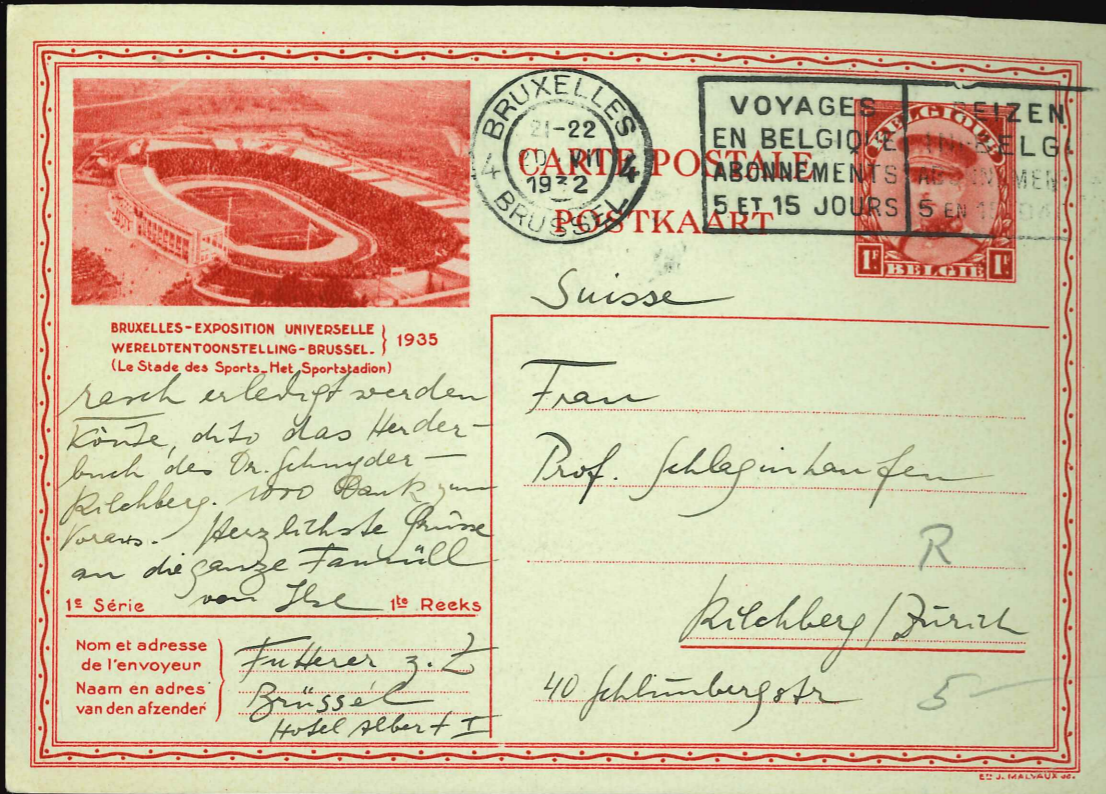 BRUXELLES
21-22
20 VII
1932
4 4
BRUSSEL
VOYAGES
EN BELGIQUE
ABONNEMENTS
5 ET 15 JOURS
REIZEN
IN BELG
5 EN 15
BELGIQUE
1F BELGIË 1F
CARTE POSTALE
POSTKAART
BRUXELLES-EXPOSITION UNIVERSELLE
WERELDTENTOONSTELLING-BRUSSEL. } 1935
(Le Stade des Sports_Het Sportstadion)
rasch erledigt werden
könte, dito das Herder-
buch des Dr. Schnyder-
Kilchberg. 1000 Dank zum
Voraus. Herzlichste Grüsse
an die ganze Famüll
von Ilse
1e Série 1te Reeks
Nom et adresse
de l'envoyeur
Naam en adres
van den afzender
Futterer z. Z
Brüssel
Hotel Albert I
Suisse
Frau
Prof. Schlaginhaufen
R
Kilchberg/Zürich
40 Schlimbergstr
5
ED J. MALVAUX